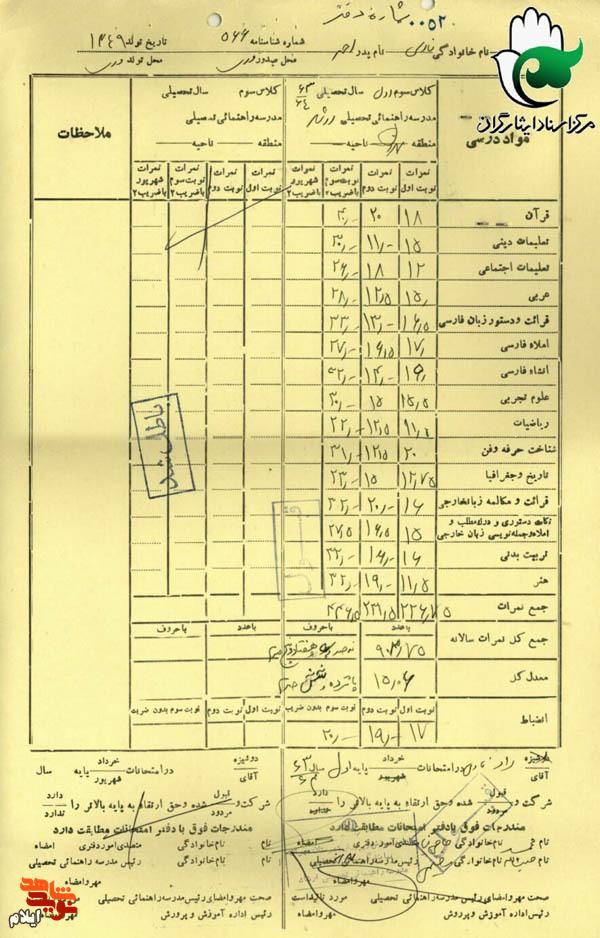 شماره دفتر ۰۰۵۲
نام خانوادگی نام پدر شماره شناسنامه ۵۶۶ تاریخ تولد ۱۳۴۹
محل صدور محل تولد
مرکز اسناد ایثارگران
مواد درسی
کلاس سوم اول سال تحصیلی ۶۳ ۶۴
مدرسه راهنمائی تحصیلی
منطقه ناحیه
کلاس سوم سال تحصیلی
مدرسه راهنمائی تحصیلی
منطقه ناحیه
ملاحظات
نمرات نوبت اول نمرات نوبت دوم نمرات نوبت سوم با ضریب ۲ نمرات شهریور با ضریب ۲
نمرات نوبت اول نمرات نوبت دوم نمرات نوبت سوم با ضریب ۲ نمرات شهریور با ضریب ۲
قرآن ۱۸ ۲۰
تعلیمات دینی ۱۵ ۱۱/- ۳۰/-
تعلیمات اجتماعی ۱۲ ۱۸ ۲۶/-
عربی ۱۵/ ۱۲/۵ ۲۸/-
قرائت و دستور زبان فارسی ۱۶/۵ ۱۳/- ۳۳/-
املاء فارسی ۱۷/ ۱۶/۵ ۲۷/-
انشاء فارسی ۱۴/- ۳۲/-
علوم تجربی ۱۵/۵ ۱۵ ۳۰/-
ریاضیات ۱۲/۵ ۲۲/-
شناخت حرفه وفن ۲۰ ۱۲/۵ ۳۱/-
تاریخ و جغرافیا ۱۲/۷۵ ۱۵ ۲۳/-
قرائت و مکالمه زبانخارجی ۱۶ ۲۰/- ۳۲/-
نکات دستوری و درک مطلب و املاء و جمله نویسی زبان خارجی ۱۵ ۱۶/۵ ۲۷/۵
تربیت بدنی ۱۶ ۱۶/- ۳۲/-
هنر ۱۱/۵ ۱۹/- ۳۲/-
جمع نمرات ۲۲۶/۷۵ ۲۳۱/۵ ۴۴۶/۵
باعدد باحروف باعدد باحروف
جمع کل نمرات سالانه
معدل کل ۱۵/۰۶ پانزده و شش صدم
نوبت اول نوبت دوم نوبت سوم بدون ضریب نوبت اول نوبت دوم نوبت سوم بدون ضریب
انضباط ۱۷ ۱۹/- ۲۰/-
باطل شد
دوشیزه آقای در امتحانات خرداد شهریور پایه اول سال ۶۳
شرکت و قبول مردود شده وحق ارتقاء به پایه بالاتر را دارد ندارد
مندرجات فوق با دفتر امتحانات مطابقت دارد
نام نام خانوادگی متصدی آمور دفتری امضاء
نام نام خانوادگی رئیس مدرسه راهنمائی تحصیلی
مهر و امضاء
صحت مهر و امضای رئیس مدرسه راهنمائی تحصیلی مورد تائید است
رئیس اداره آموزش و پرورش مهر و امضاء
دوشیزه آقای در امتحانات خرداد شهریور پایه سال
شرکت و قبول مردود شده وحق ارتقاء به پایه بالاتر را دارد ندارد
مندرجات فوق با دفتر امتحانات مطابقت دارد
نام نام خانوادگی متصدی آمور دفتری امضاء
نام نام خانوادگی رئیس مدرسه راهنمائی تحصیلی
مهر و امضاء
صحت مهر و امضای رئیس مدرسه راهنمائی تحصیلی مورد تائید است
رئیس اداره آموزش و پرورش مهر و امضاء
نوید شاهد
ایلام